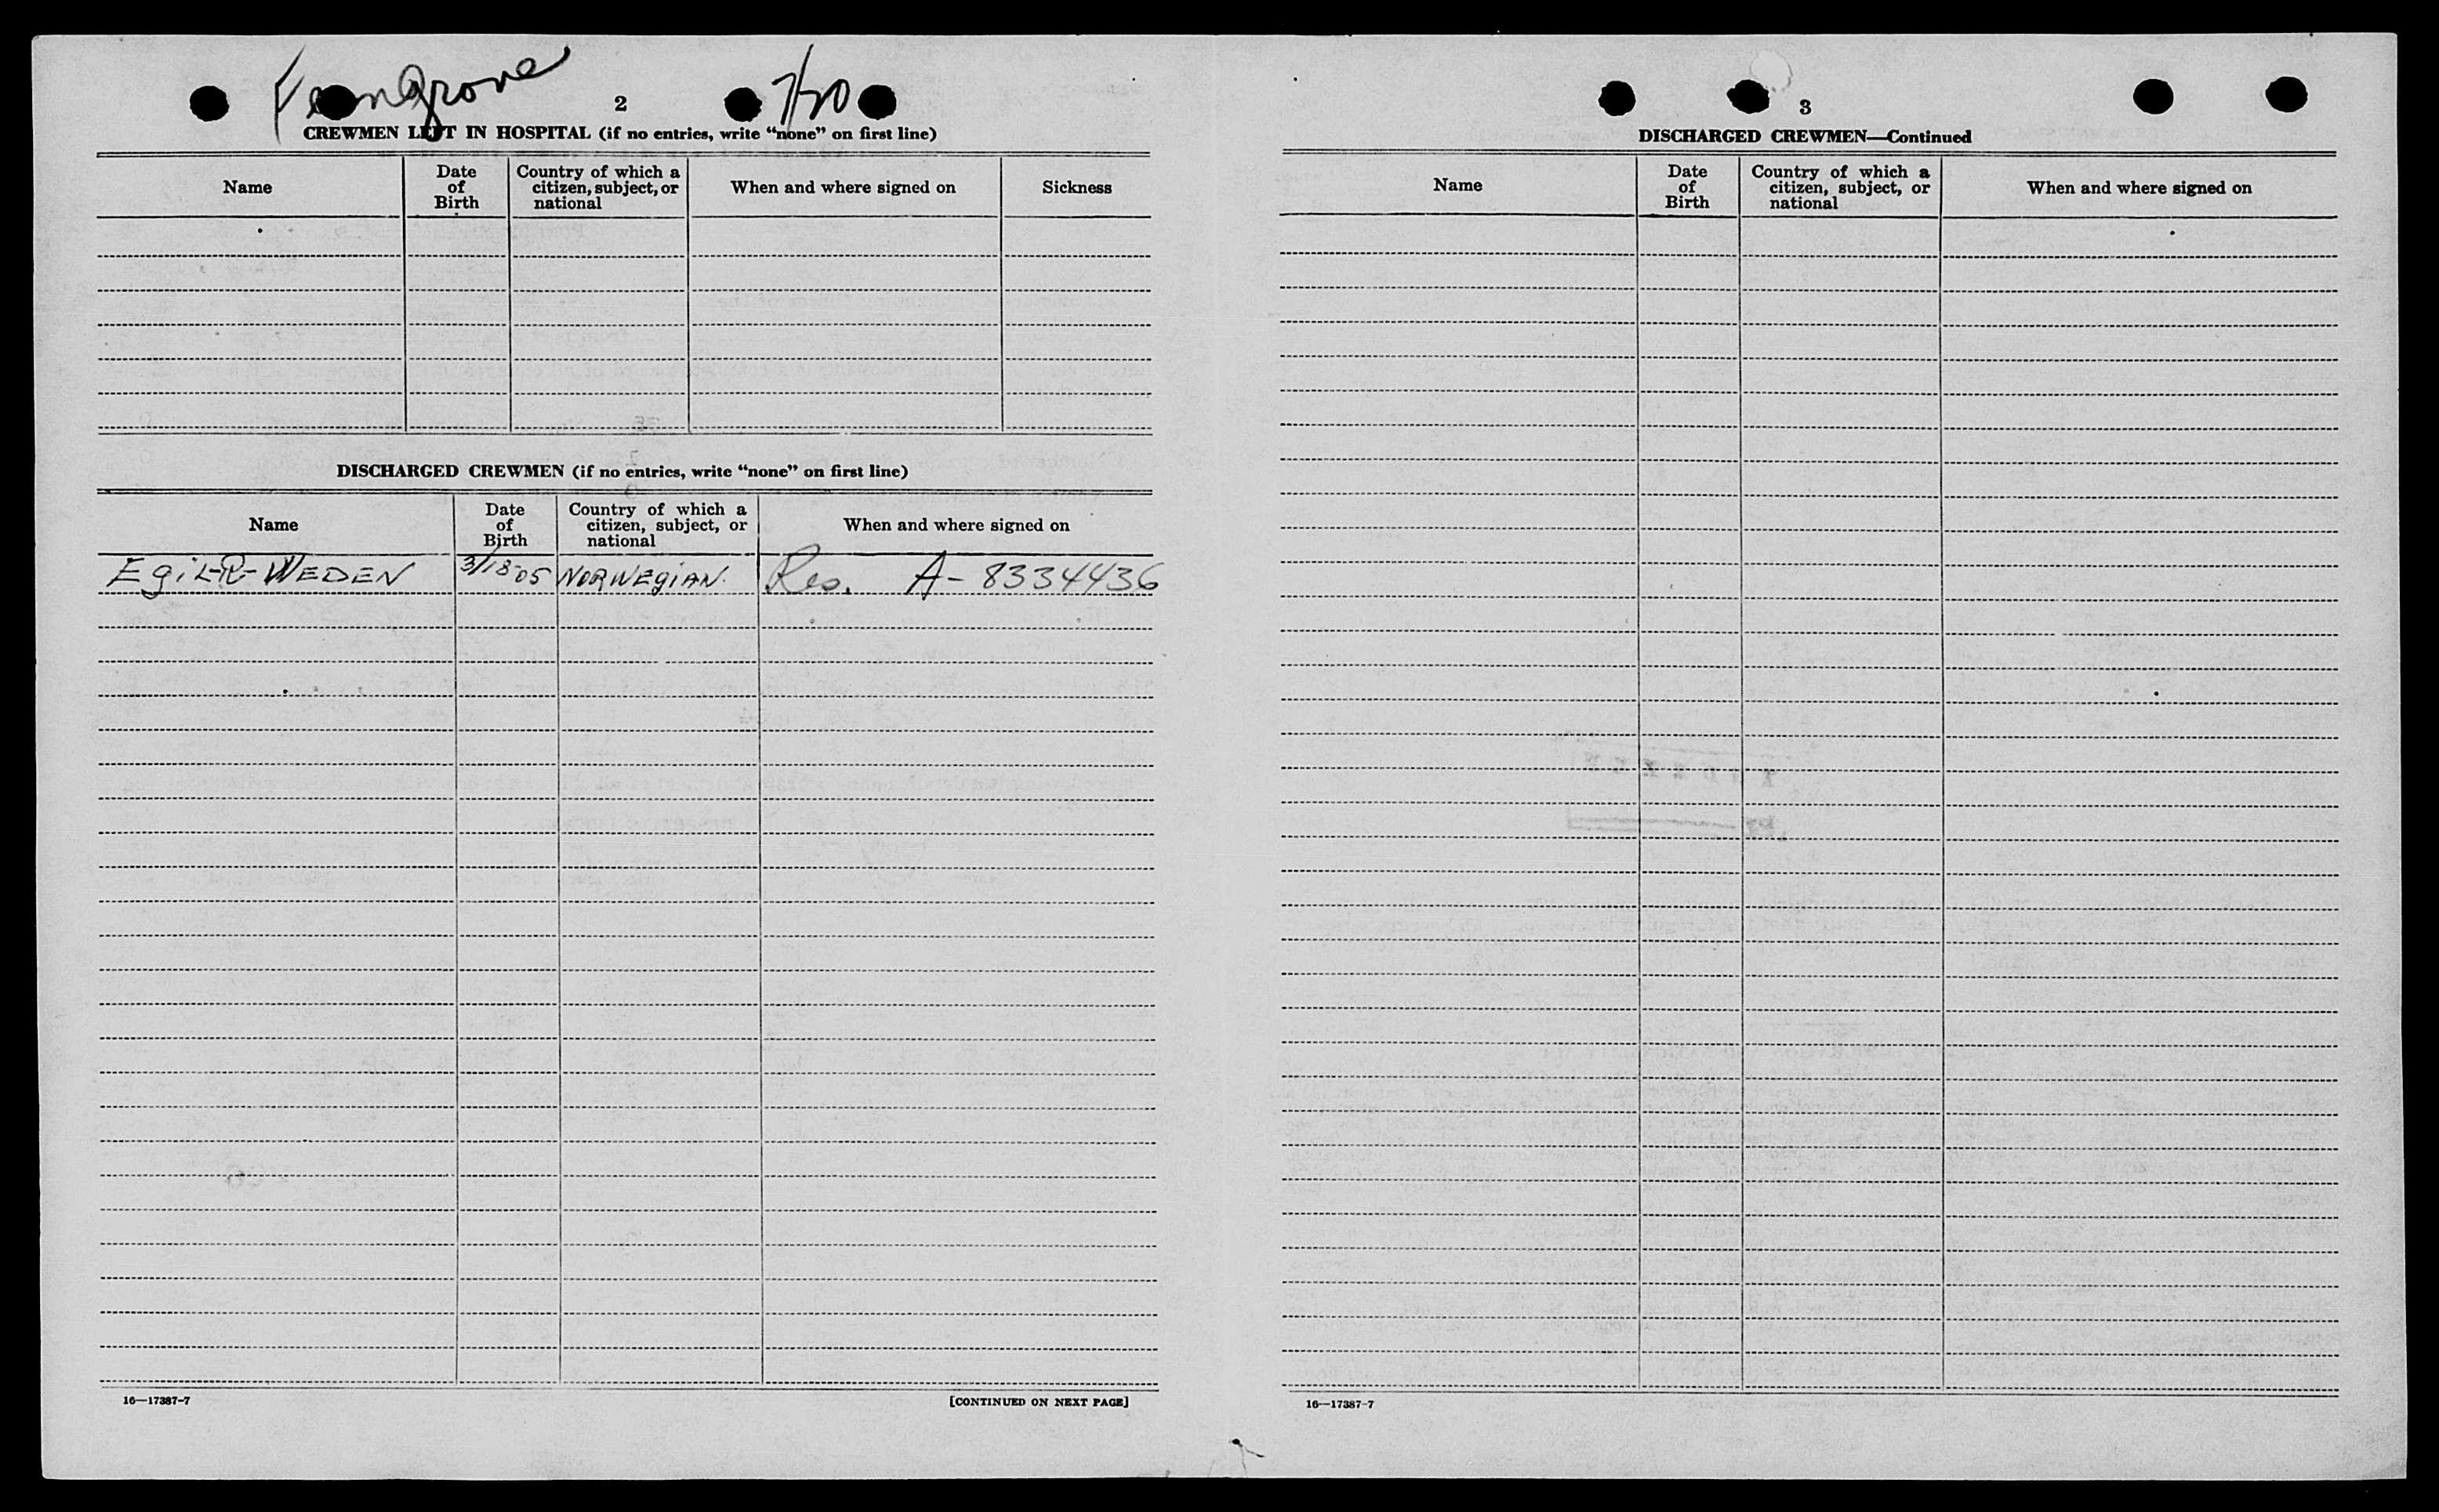 Ferngrove 7/20
2
CREWMEN LEFT IN HOSPITAL (if no entries, write "none" on first line)
Name Date of Birth Country of which a citizen, subject, or national When and where signed on Sickness
DISCHARGED CREWMEN (if no entries, write "none" on first line)
Name Date of Birth Country of which a citizen, subject, or national When and where signed on
Egil-R-WEDEN 3/18-05 NORWEgiAN. Res. A-8334436
16—17387-7 [CONTINUED ON NEXT PAGE]
3
DISCHARGED CREWMEN—Continued
Name Date of Birth Country of which a citizen, subject, or national When and where signed on
16—17387-7